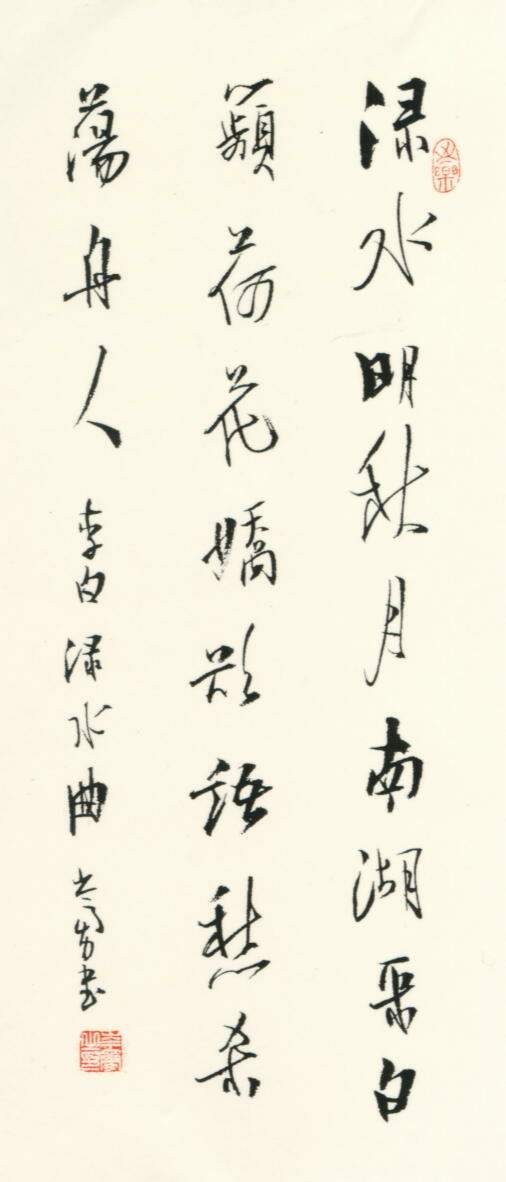 渌水明秋月南湖采白
蘋荷花嬌欲語愁杀
蕩舟人 李白渌水曲